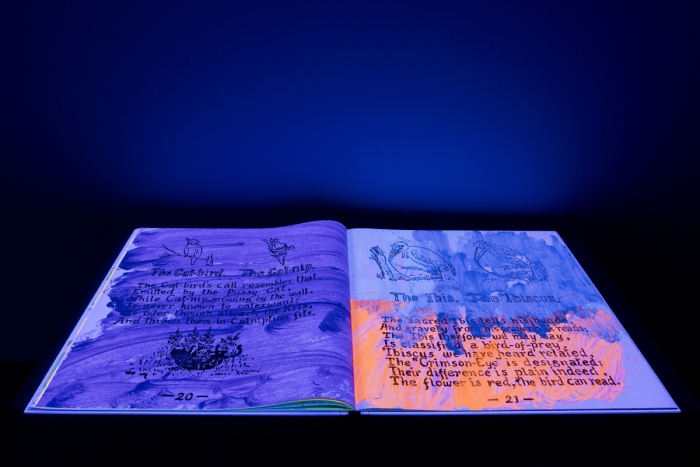 The Cat-bird. The Cat-nip.
The Cat-bird's call resembles that,
Emitted by the Pussy Cat,
While Cat-nip, growing by the wall,
Is never known to caterwaul:
Its odor though attracts the Kits,
And throws them in Catniptic fits.
—20—
The Ibis. The 'Ibiscus.
The sacred Ibis tells his beads,
And gravely from his prayer-book reads;
The Ibis therefore we may say,
Is classified a bird-of-prey.
'Ibiscus we have heard related,
The "Crimson-Eye" is designated;
Their difference is plain indeed,
The flower is red, the bird can read.
—21—